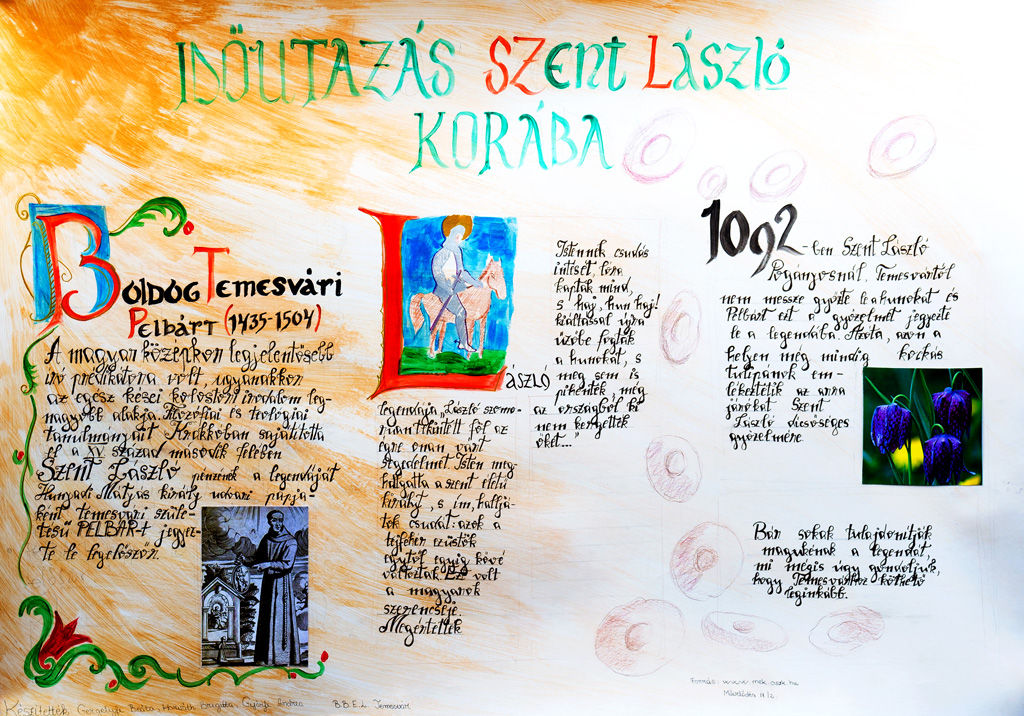 IDŐUTAZÁS SZENT LÁSZLÓ
KORÁBA
BOLDOG TEMESVÁRI
PELBÁRT (1435-1504)
A magyar középkor legjelentősebb
író prédikátora volt, ugyanakkor
az egész kései kolostori irodalom leg-
nagyobb alakja. Filozófiai és teológiai
tanulmányait Krakkóban sajátította
el a XV. század második felében
Szent László pénzének a legendáját
Hunyadi Mátyás király udvari papja-
ként temesvári szüle-
tésű PELBÁRT jegyez-
te le legelőször.
LÁSZLÓ
legendája „László szomo-
rúan tekintett föl az
égre onnan várt
segedelmet. Isten meg-
hallgatta a szent életű
királyt, s ím, halljá-
tok csudát: azok a
tejfehér ezüstök
egytől egyig kővé
változtak. Ez volt
a magyarok
szerencséje.
Megértették
Istennek csudás
intését, lóra
kaptak mind,
s haj, hun haj!
kiáltással újra
űzőbe fogták
a kunokat, s
meg sem is
pihentek, míg
az országból ki
nem kergették
őket..."
1092-ben Szent László
Pogányosnál, Temesvártól
nem messze győzte le a kunokat és
Pelbárt ezt a győzelmét jegyezte
le a legendába. Azóta, azon a
helyen még mindig kockás
tulipánok em-
lékeztetik az arra
járókat Szent-
László dicsőséges
győzelmére.
Bár sokak tulajdonítják
magukénak a legendát,
mi mégis úgy gondoljuk,
hogy Temesvárhoz köthető
leginkább.
Forrás: www.mek.oszk.hu
Művelődés
Készítették: Gergely Beáta, Horváth Brigitta, György Andrea B.B.E.L. Temesvár